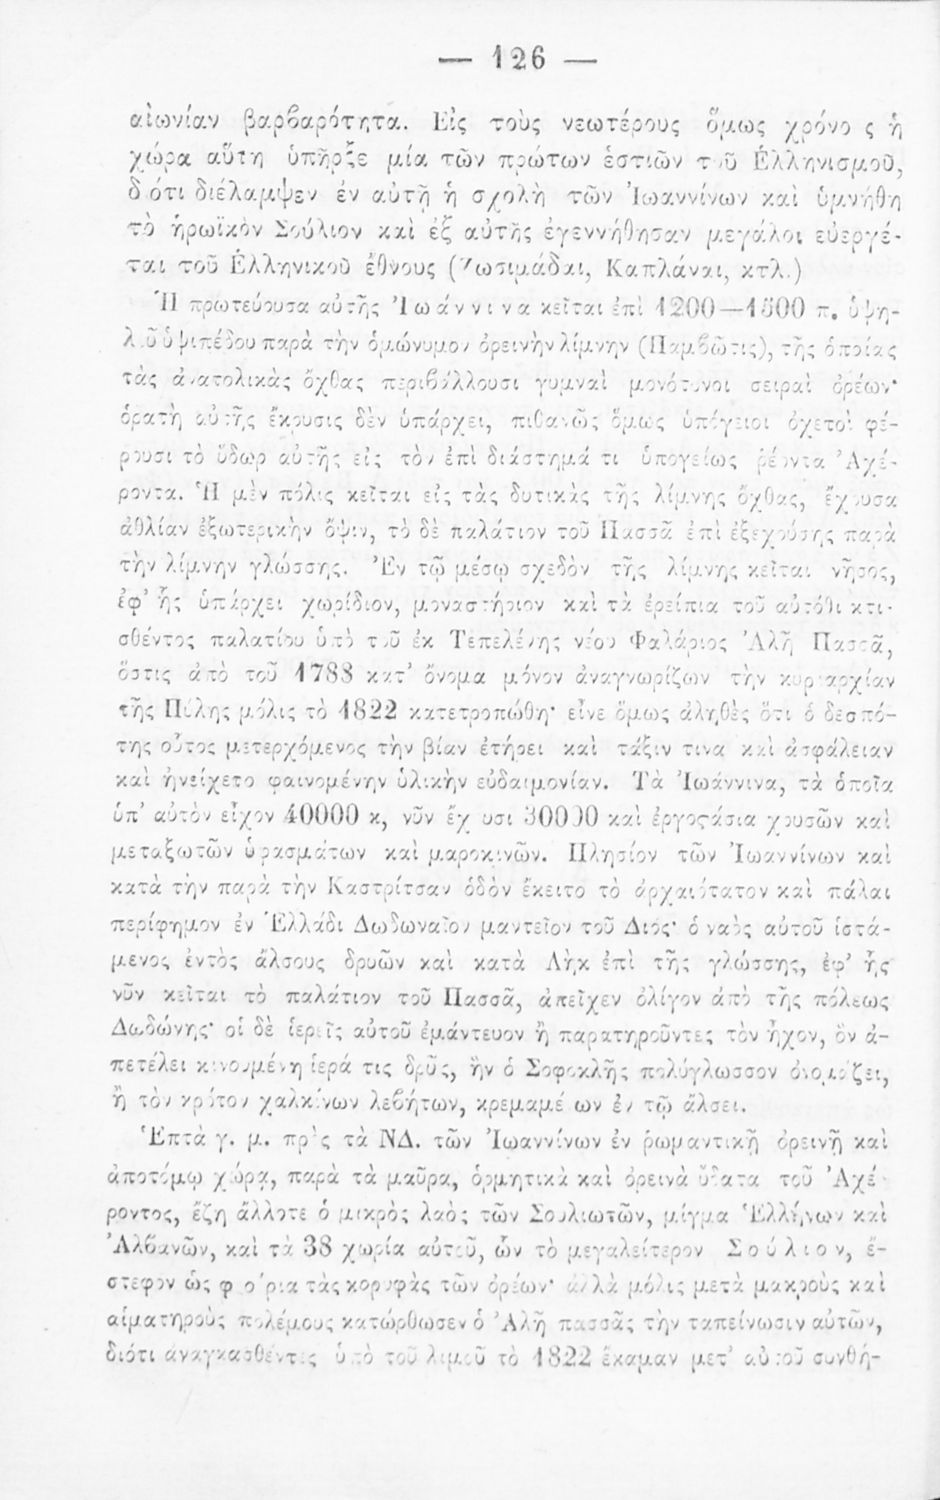 — 126 —
αἰωνίαν βαρβαρότητα. Εἰς τοὺς νεωτέρους ὅμως χρόνο ς ἡ
χώρα αὕτη ὑπῆρξε μία τῶν πρώτων ἑστιῶν τοῦ Ἑλληνισμοῦ,
διότι διέλαμψεν ἐν αὐτῇ ἡ σχολὴ τῶν Ἰωαννίνων καὶ ὑμνήθη
τὸ ἡρωϊκὸν Σούλιον καὶ ἐξ αὐτῆς ἐγεννήθησαν μεγάλοι εὐεργέ-
ται τοῦ Ἑλληνικοῦ ἔθνους (Ζωσιμάδαι, Καπλάναι, κτλ.)
Ἡ πρωτεύουσα αὐτῆς Ἰωάννινα κεῖται ἐπὶ 1200—1500 π. ὑψη-
λοῦ ὑψιπέδου παρὰ τὴν ὁμώνυμον ὀρεινὴν λίμνην (Παμβῶτις), τῆς ὁποίας
τὰς ἀνατολικὰς ὄχθας περιβάλλουσι γυμναὶ μονότονοι σειραὶ ὀρέων·
ὁρατὴ αὐτῆς ἔκρυσις δὲν ὑπάρχει, πιθανῶς ὅμως ὑπόγειοι ὀχετοὶ φέ-
ρουσι τὸ ὕδωρ αὐτῆς εἰς τὸν ἐπὶ διάστημά τι ὑπογείως ῥέοντα Ἀχέ-
ροντα. Ἡ μὲν πόλις κεῖται εἰς τὰς δυτικὰς τῆς λίμνης ὄχθας, ἔχουσα
ἀθλίαν ἐξωτερικὴν ὄψιν, τὸ δὲ παλάτιον τοῦ Πασσᾶ ἐπὶ ἐξεχούσης παρὰ
τὴν λίμνην γλώσσης. Ἐν τῷ μέσῳ σχεδὸν τῆς λίμνης κεῖται νῆσος,
ἐφ' ἧς ὑπάρχει χωρίδιον, μοναστήριον καὶ τὰ ἐρείπια τοῦ αὐτόθι κτι-
σθέντος παλατίου ὑπὸ τοῦ ἐκ Τεπελένης νέου Φαλάριος Ἀλῆ Πασσᾶ,
ὅστις ἀπὸ τοῦ 1788 κατ' ὄνομα μόνον ἀναγνωρίζων τὴν κυριαρχίαν
τῆς Πύλης μόλις τὸ 1822 κατετροπώθη· εἶνε ὅμως ἀληθὲς ὅτι ὁ δεσπό-
της οὗτος μετερχόμενος τὴν βίαν ἐτήρει καὶ τάξιν τινα καὶ ἀσφάλειαν
καὶ ἠνείχετο φαινομένην ὑλικὴν εὐδαιμονίαν. Τὰ Ἰωάννινα, τὰ ὁποῖα
ὑπ' αὐτὸν εἶχον 40000 κ, νῦν ἔχουσι 30000 καὶ ἐργοστάσια χρυσῶν καὶ
μεταξωτῶν ὑφασμάτων καὶ μαροκινῶν. Πλησίον τῶν Ἰωαννίνων καὶ
κατὰ τὴν παρὰ τὴν Καστρίτσαν ὁδὸν ἔκειτο τὸ ἀρχαιότατον καὶ πάλαι
περίφημον ἐν Ἑλλάδι Δωδωναῖον μαντεῖον τοῦ Διός· ὁ ναὸς αὐτοῦ ἱστά-
μενος ἐντὸς ἄλσους δρυῶν καὶ κατὰ Λὴκ ἐπὶ τῆς γλώσσης, ἐφ' ἧς
νῦν κεῖται τὸ παλάτιον τοῦ Πασσᾶ, ἀπεῖχεν ὀλίγον ἀπὸ τῆς πόλεως
Δωδώνης· οἱ δὲ ἱερεῖς αὐτοῦ ἐμάντευον ἢ παρατηροῦντες τὸν ἦχον, ὃν ἀ-
πετέλει κινουμένη ἱερά τις δρῦς, ἣν ὁ Σοφοκλῆς πολύγλωσσον ὀνομάζει,
ἢ τὸν κρότον χαλκίνων λεβήτων, κρεμαμένων ἐν τῷ ἄλσει.
Ἑπτὰ γ. μ. πρὸς τὰ ΝΔ. τῶν Ἰωαννίνων ἐν ῥωμαντικῇ ὀρεινῇ καὶ
ἀποτόμῳ χώρᾳ, παρὰ τὰ μαῦρα, ὁρμητικὰ καὶ ὀρεινὰ ὕδατα τοῦ Ἀχέ-
ροντος, ἔζη ἄλλοτε ὁ μικρὸς λαὸς τῶν Σουλιωτῶν, μίγμα Ἑλλήνων καὶ
Ἀλβανῶν, καὶ τὰ 38 χωρία αὐτοῦ, ὧν τὸ μεγαλείτερον Σούλιον, ἔ-
στεφον ὡς φρούρια τὰς κορυφὰς τῶν ὀρέων· ἀλλὰ μόλις μετὰ μακροὺς καὶ
αἱματηροὺς πολέμους κατώρθωσεν ὁ Ἀλῆ πασσᾶς τὴν ταπείνωσιν αὐτῶν,
διότι ἀναγκασθέντες ὑπὸ τοῦ λιμοῦ τὸ 1822 ἔκαμαν μετ' αὐτοῦ συνθή-